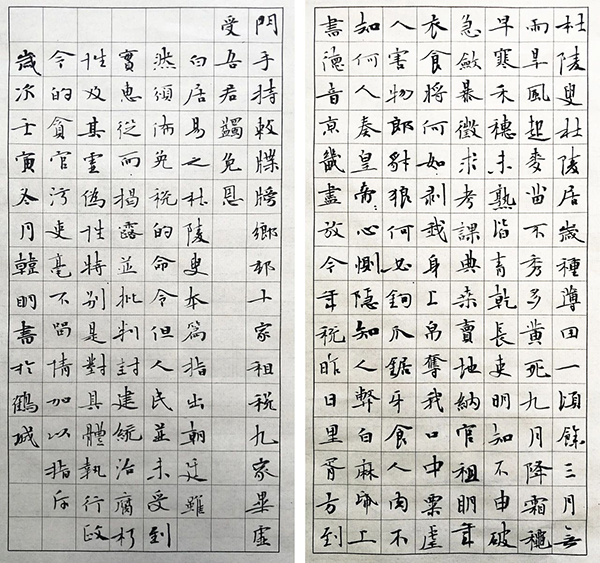 杜陵叟杜陵居歲種薄田一頃餘三月無
雨旱風起麥苗不秀多黃死九月降霜穐
早寒禾穗未熟皆青乾長吏明知不申破
急斂暴徵求考課典桑賣地納官租明年
衣食將何如剥我身上帛奪我口中粟虐
人害物即豺狼何必鉤爪鋸牙食人肉不
知何人奏皇帝心惻隱知人弊白麻帋上
書德音京畿盡放今年稅昨日里胥方到
門手持敕牒牓鄉邨十家租稅九家畢虛
受吾君蠲免恩
白居易之杜陵叟本篇指出朝廷雖
然頒佈免稅的命令但人民並未受到
實惠從而揭露並批判封建統治腐朽
性及其虛偽性特別是對具體執行政
令的貪官污吏毫不留情加以指斥
歲次壬寅冬月韓明書於鶴城